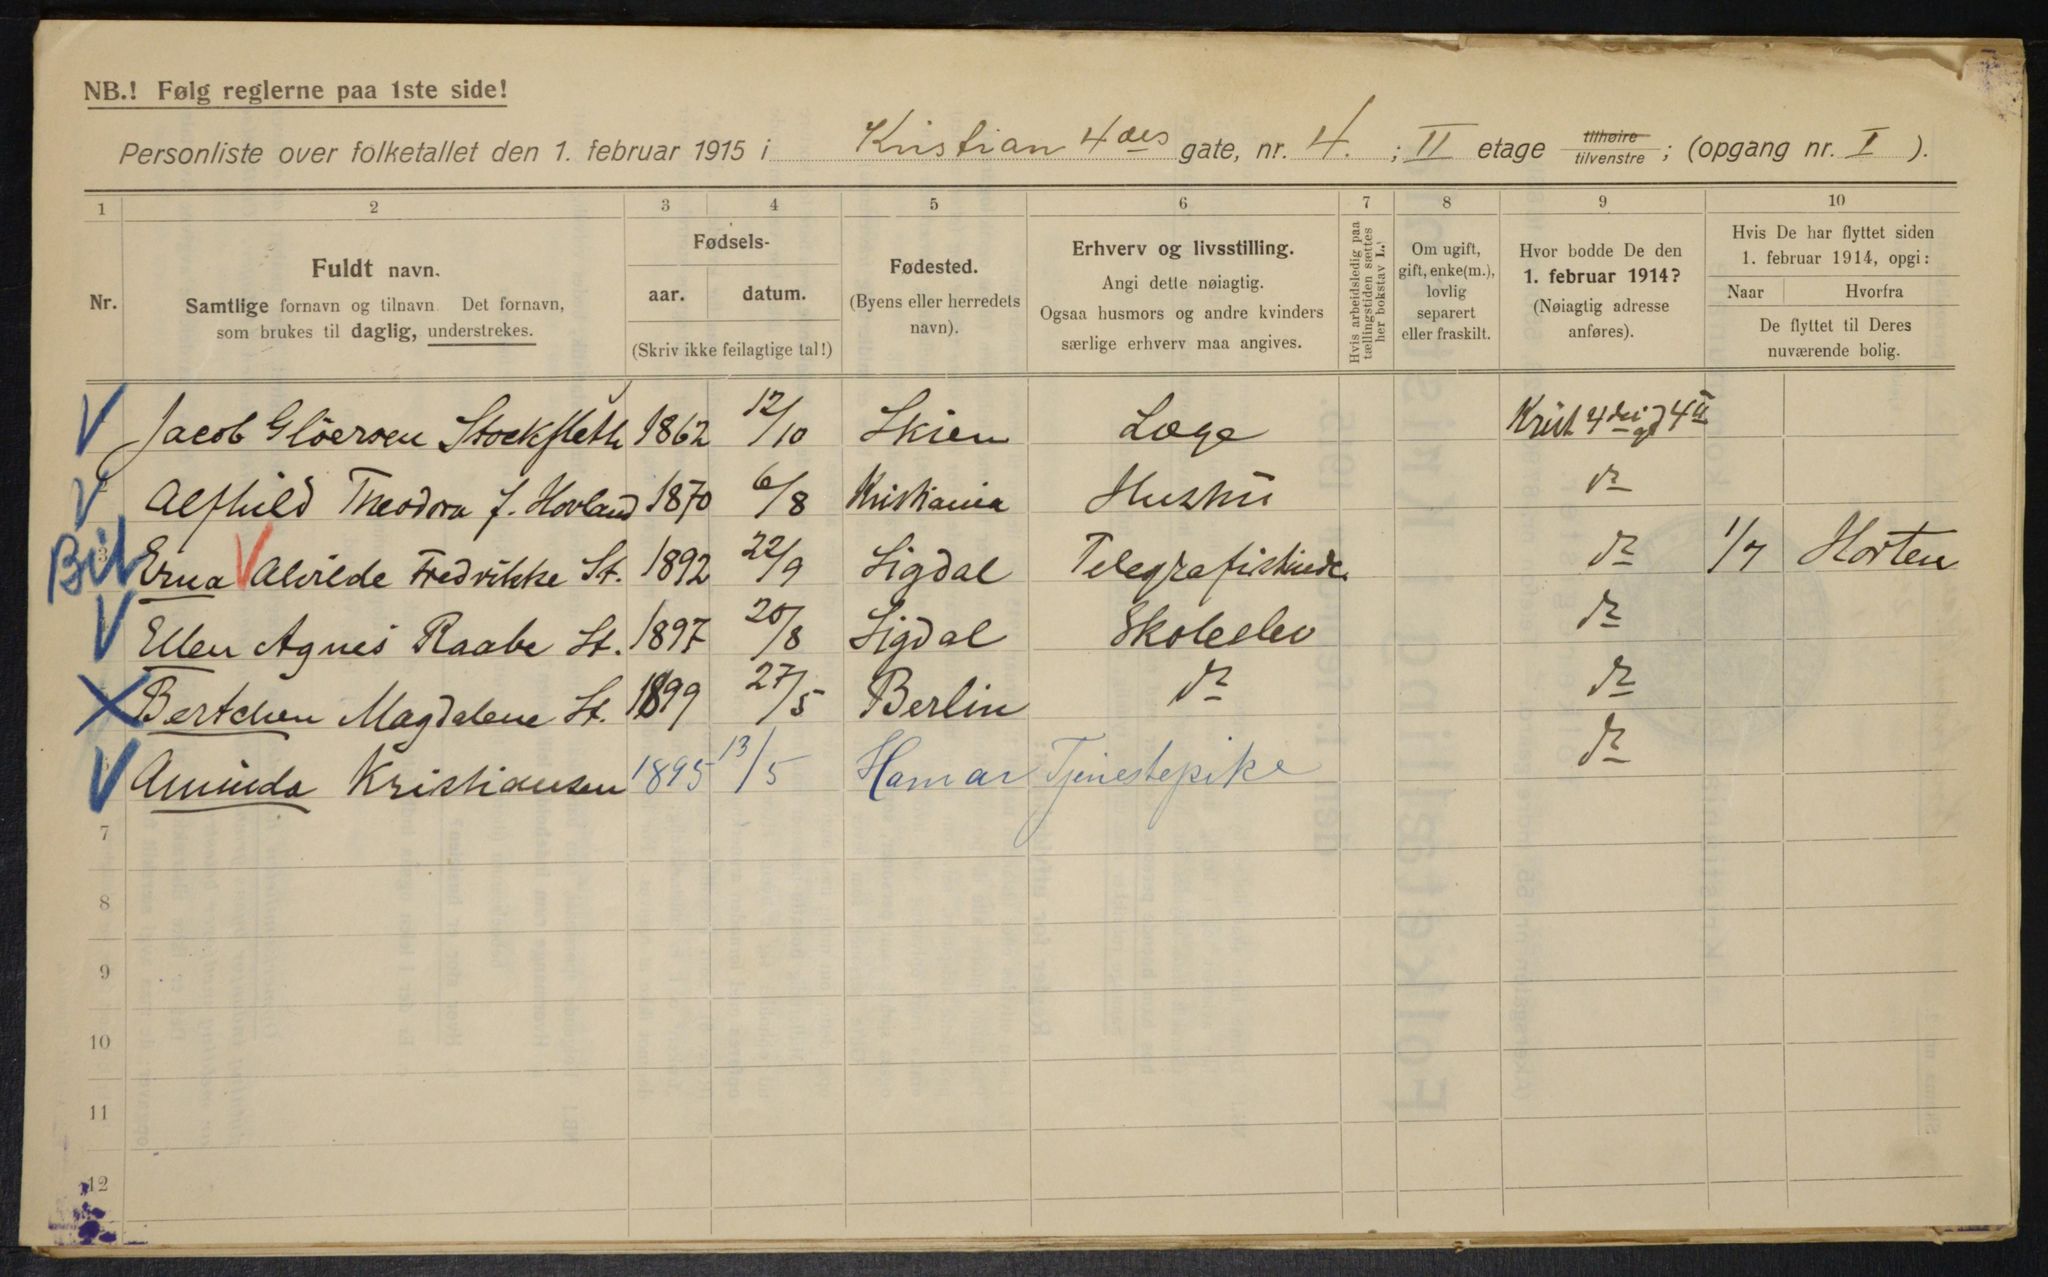 NB.! Følg reglerne paa 1ste side!
Personliste over folketallet den 1. februar 1915 i Kristian 4des gate, nr. 4. ; II etage tilhøire tilvenstre ; (opgang nr. I ).
1 2 3 4 5 6 7 8 9 10
Nr.
Fuldt navn.
Samtlige fornavn og tilnavn Det fornavn,
som brukes til daglig, understrekes.
Fødsels-
aar. datum.
(Skriv ikke feilagtige tal!)
Fødested.
(Byens eller herredets
navn).
Erhverv og livsstilling.
Angi dette nøiagtig.
Ogsaa husmors og andre kvinders
særlige erhverv maa angives.
Hvis arbeidsledig paa
tællingstiden sættes
her bokstav L.
Om ugift,
gift, enke(m.),
lovlig
separert
eller fraskilt.
Hvor bodde De den
1. februar 1914?
(Nøiagtig adresse
anføres).
Hvis De har flyttet siden
1. februar 1914, opgi:
Naar Hvorfra
De flyttet til Deres
nuværende bolig.
V Jacob Glöersen Stockfleth 1862 12/10 Skien Læge Krist 4des g 4 II
V Alfhild Theodora f. Hovland 1870 6/8 Kristiania Husmor do
Bil Erna V Alvilde Fredrikke St. 1892 22/9 Sigdal Telegrafistinde do 1/7 Horten
V Ellen Agnes Raabe St. 1897 20/8 Sigdal Skoleelev do
X Bertchen Magdalene St. 1899 27/5 Berlin do do
V Aminda Kristiansen 1895 13/5 Hamar Tjenestepike do
7
8
9
10
11
12